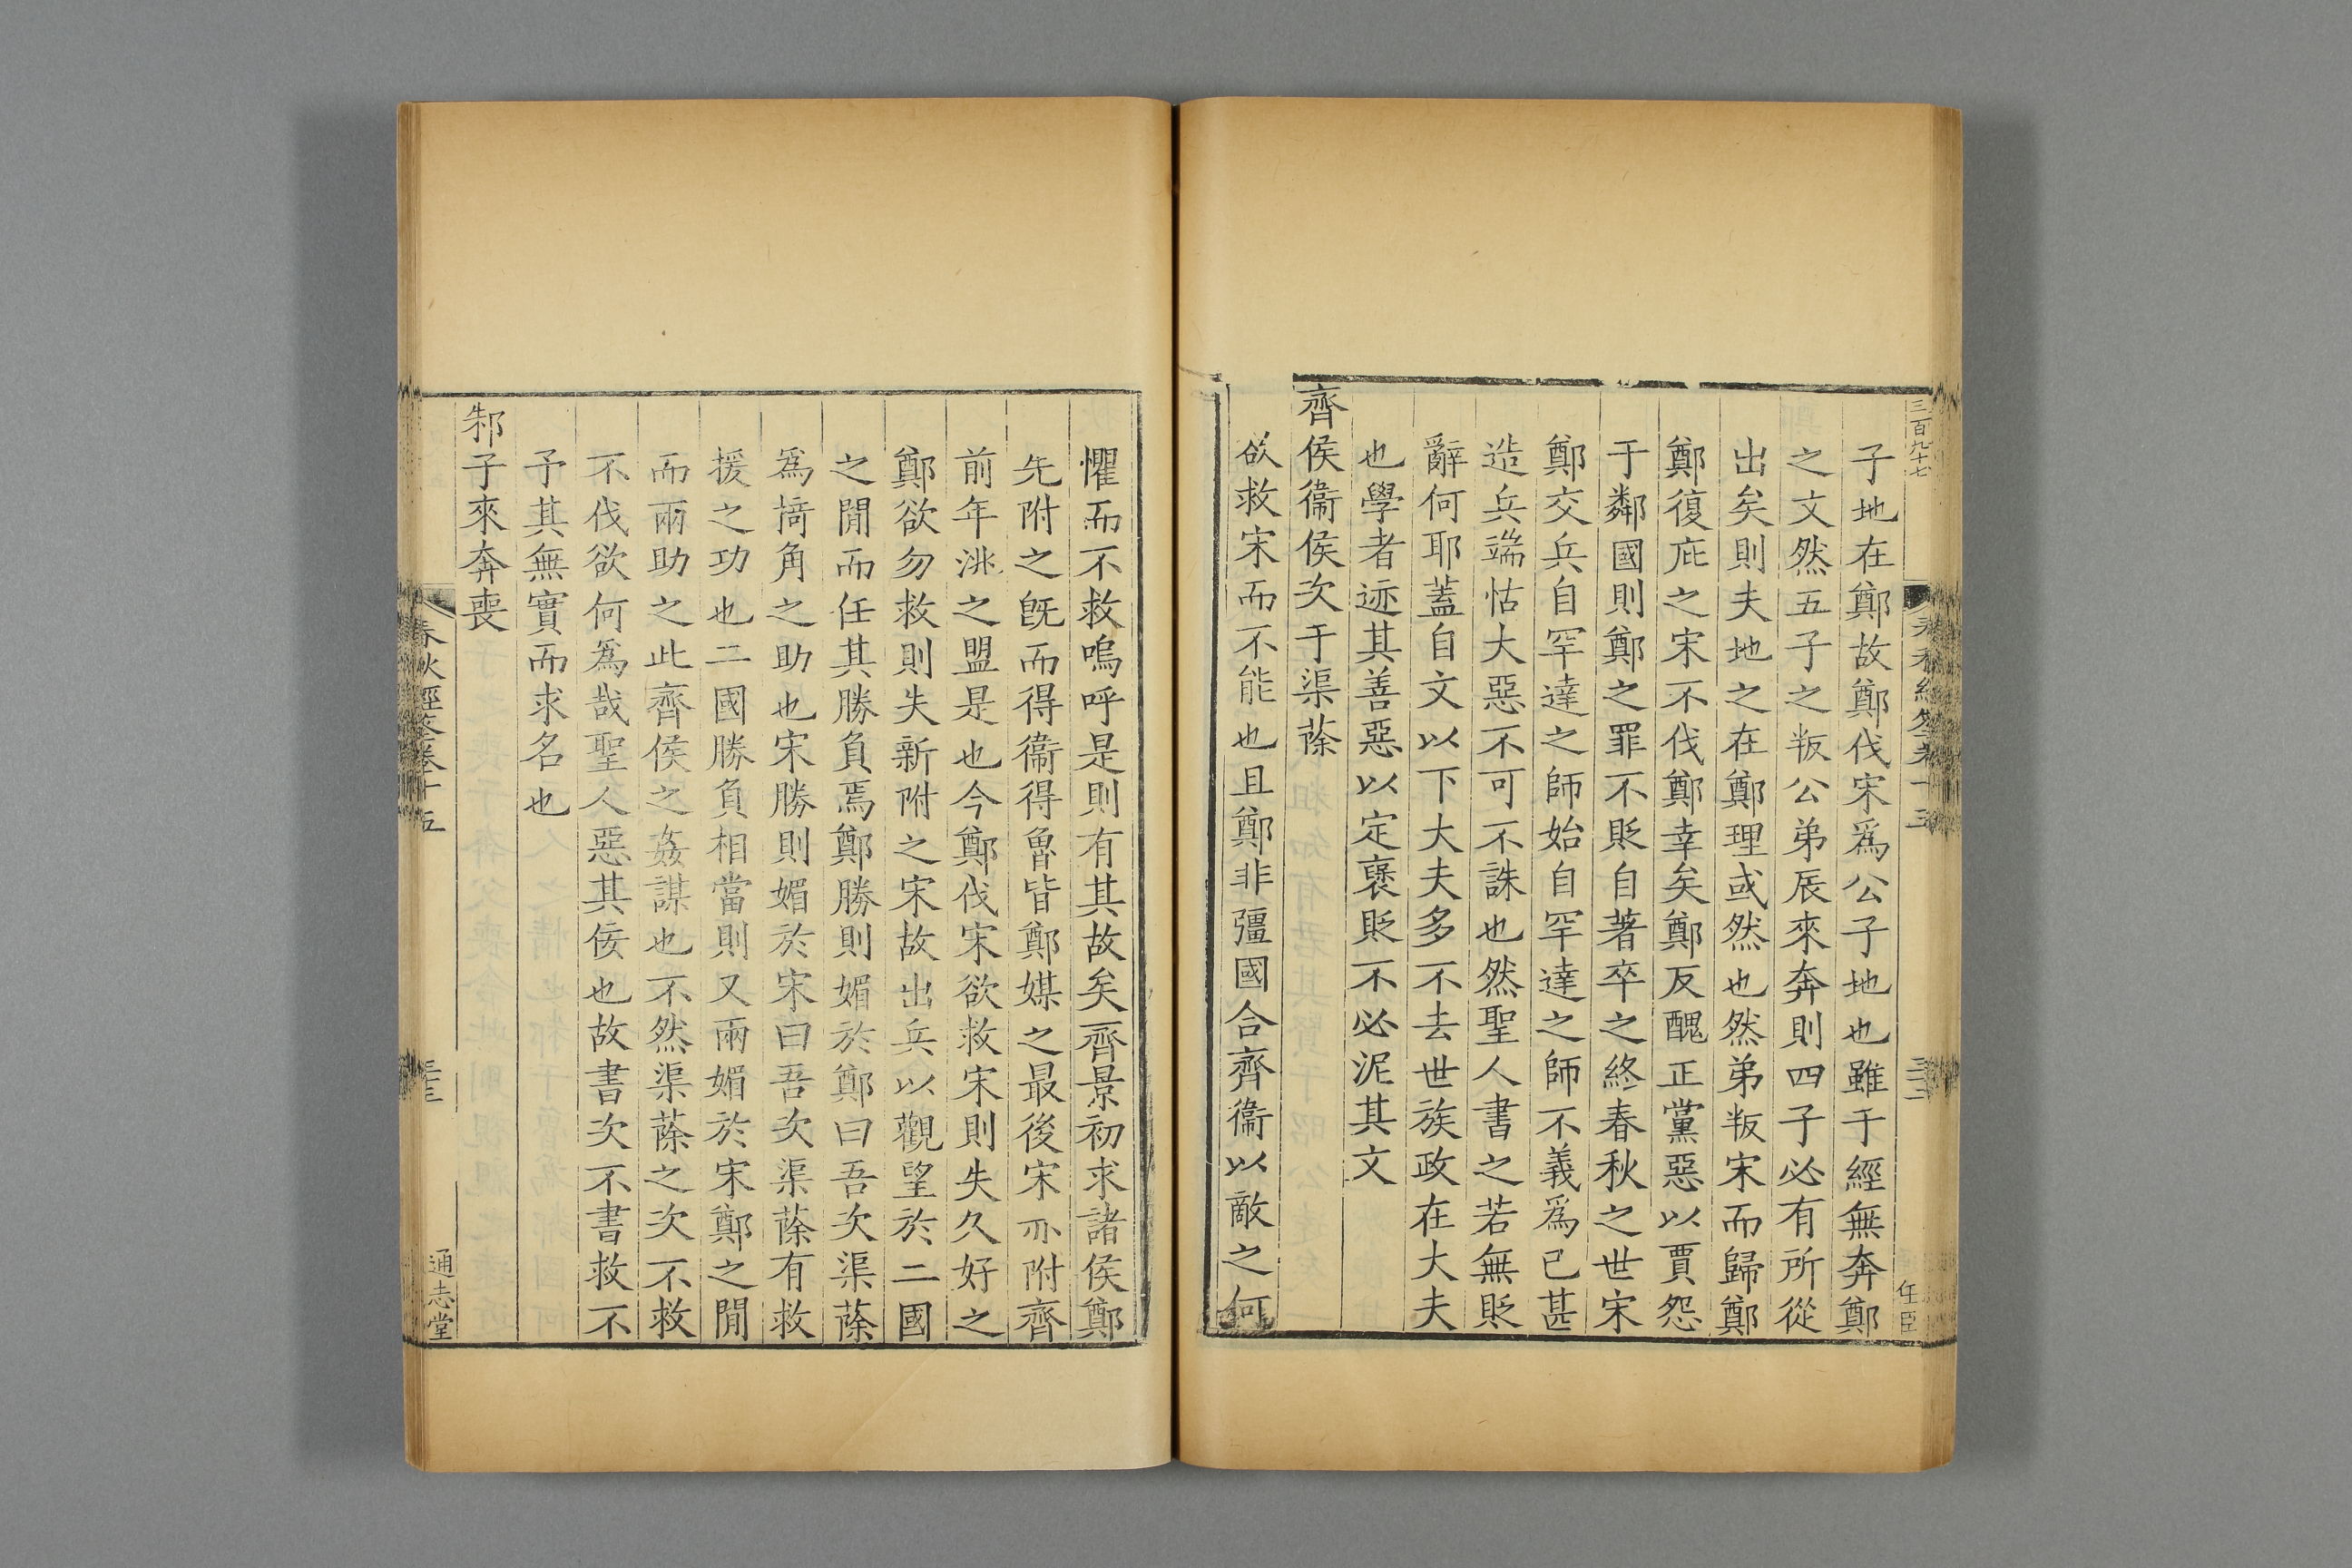 三百九十七
子地在鄭故鄭伐宋爲公子地也雖于經無奔鄭
之文然五子之叛公弟辰來奔則四子必有所從
出矣則夫地之在鄭理或然也然弟叛宋而歸鄭
鄭復庇之宋不伐鄭幸矣鄭反醜正黨惡以賈怨
于鄰國則鄭之罪不貶自著卒之終春秋之世宋
鄭交兵自罕達之師始自罕達之師不義爲已甚
造兵端怙大惡不可不誅也然聖人書之若無貶
辭何耶蓋自文以下大夫多不去世族政在大夫
也學者迹其善惡以定襃貶不必泥其文
齊侯衞侯次于渠蒢
欲救宋而不能也且鄭非彊國合齊衞以敵之何
懼而不救嗚呼是則有其故矣齊景初求諸侯鄭
先附之旣而得衞得魯皆鄭媒之最後宋亦附齊
前年洮之盟是也今鄭伐宋欲救宋則失久好之
鄭欲勿救則失新附之宋故出兵以觀望於二國
之閒而任其勝負焉鄭勝則媚於鄭曰吾次渠蒢
爲掎角之助也宋勝則媚於宋曰吾次渠蒢有救
援之功也二國勝負相當則又兩媚於宋鄭之閒
而兩助之此齊侯之姦謀也不然渠蒢之次不救
不伐欲何爲哉聖人惡其佞也故書次不書救不
予其無實而求名也
邾子來奔喪
春秋經筌卷十五
通志堂